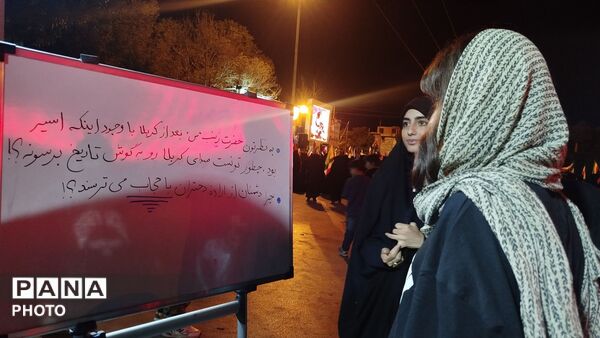 به نظرتون حضرت زینب (س) بعد از کربلا با وجود اینکه اسیر
بود، چطور تونست صدای کربلا رو به گوش تاریخ برسونه؟!
چرا دشمنان از اراده دختران با حجاب می ترسند؟!
PANA
PHOTO